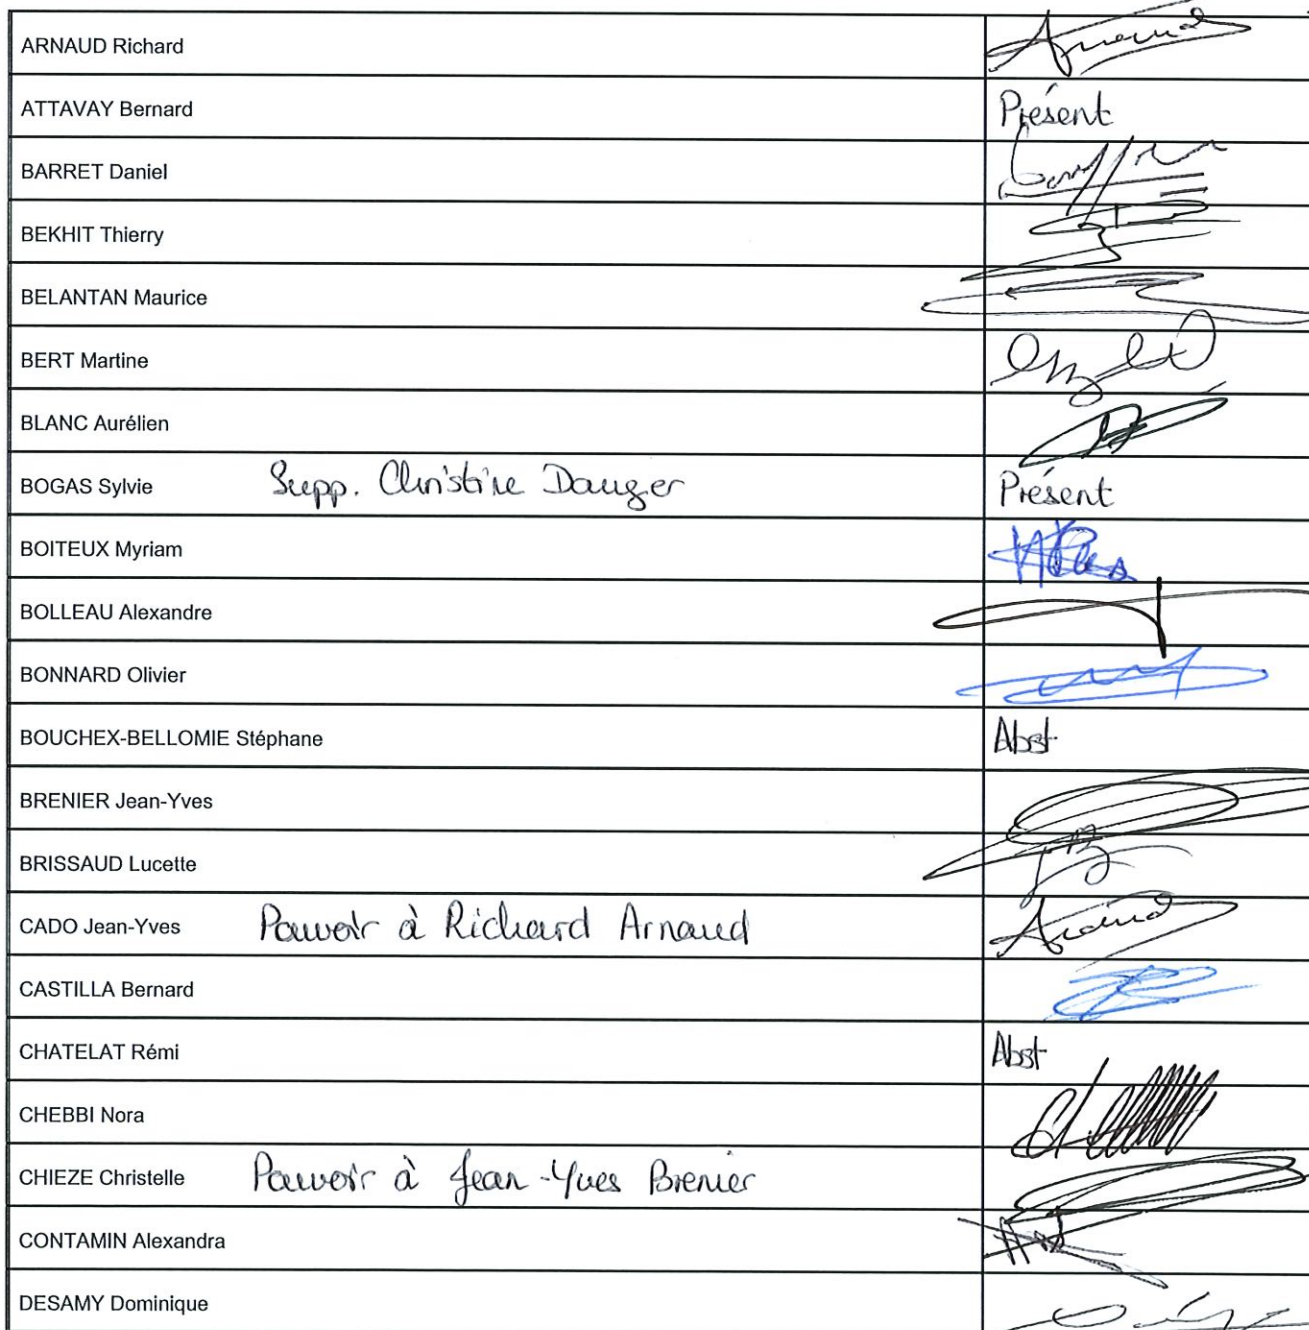 ARNAUD Richard
ATTAVAY Bernard Présent
BARRET Daniel
BEKHIT Thierry
BELANTAN Maurice
BERT Martine
BLANC Aurélien
BOGAS Sylvie Supp. Christine Dauger Présent
BOITEUX Myriam
BOLLEAU Alexandre
BONNARD Olivier
BOUCHEX-BELLOMIE Stéphane Abst
BRENIER Jean-Yves
BRISSAUD Lucette
CADO Jean-Yves Pouvoir à Richard Arnaud
CASTILLA Bernard
CHATELAT Rémi Abst
CHEBBI Nora
CHIEZE Christelle Pouvoir à Jean-Yves Brenier
CONTAMIN Alexandra
DESAMY Dominique